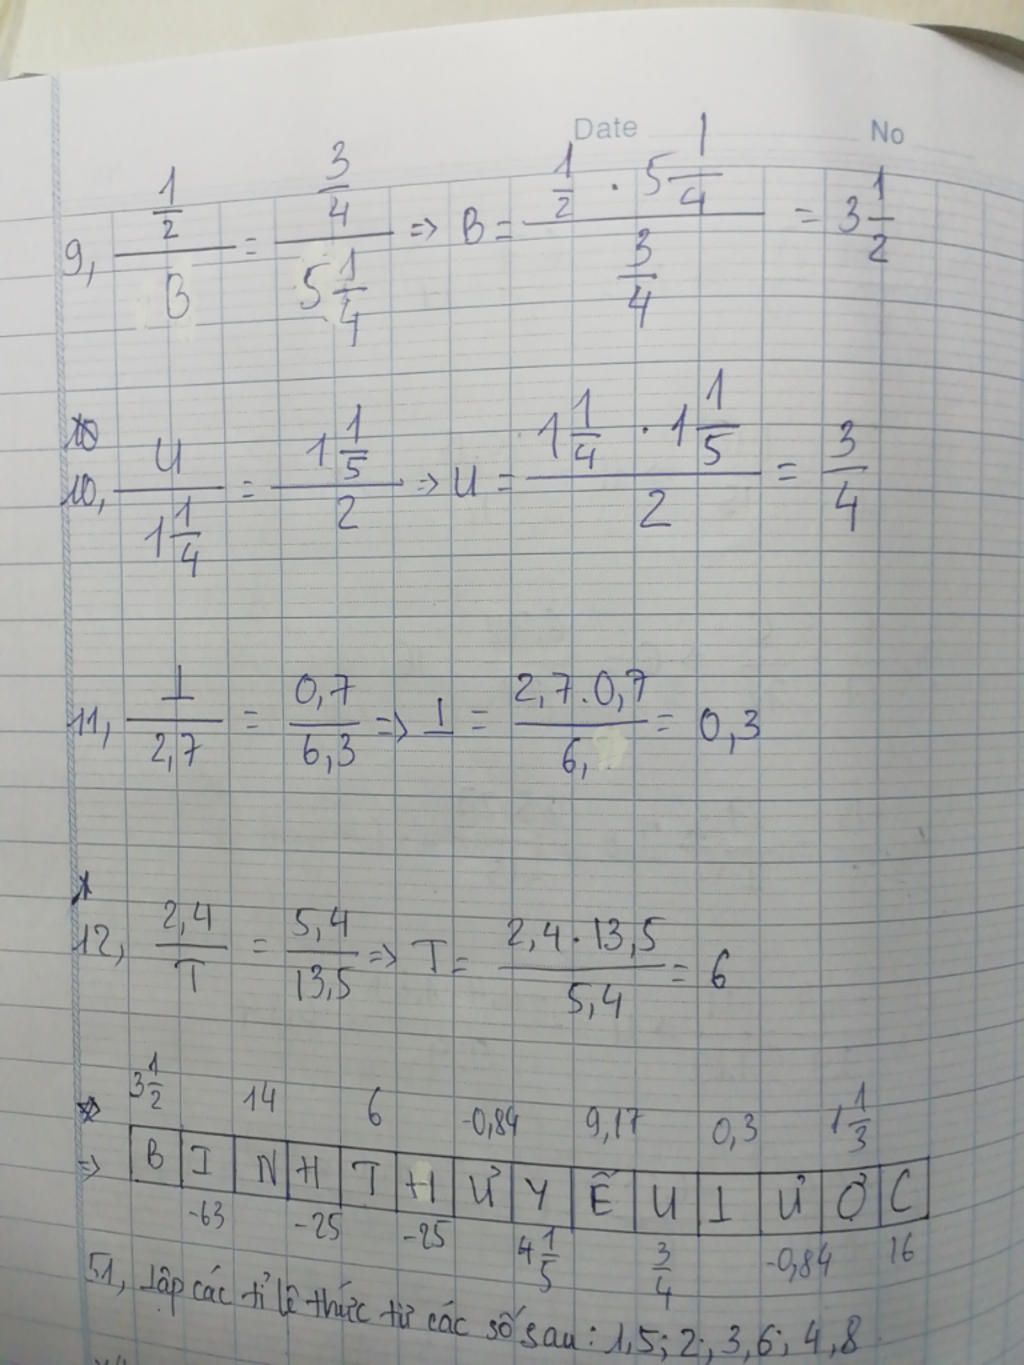 Date No
9, 1/2 / B = 3/4 / 5 1/4 => B = 1/2 . 5 1/4 / 3/4 = 3 1/2
10, U / 1 1/4 = 1 1/5 / 2 => U = 1 1/4 . 1 1/5 / 2 = 3/4
11, L / 2,7 = 0,7 / 6,3 => L = 2,7.0,7 / 6, = 0,3
12, 2,4 / T = 5,4 / 13,5 => T = 2,4.13,5 / 5,4 = 6
3 1/2 14 6 -0,84 9,17 0,3 1 1/3
=> B I N H T H Ư Y Ế U L Ư Ợ C
-63 -25 -25 4 1/5 3/4 -0,84 16
51, Lập các tỉ lệ thức từ các số sau: 1,5; 2; 3,6; 4,8